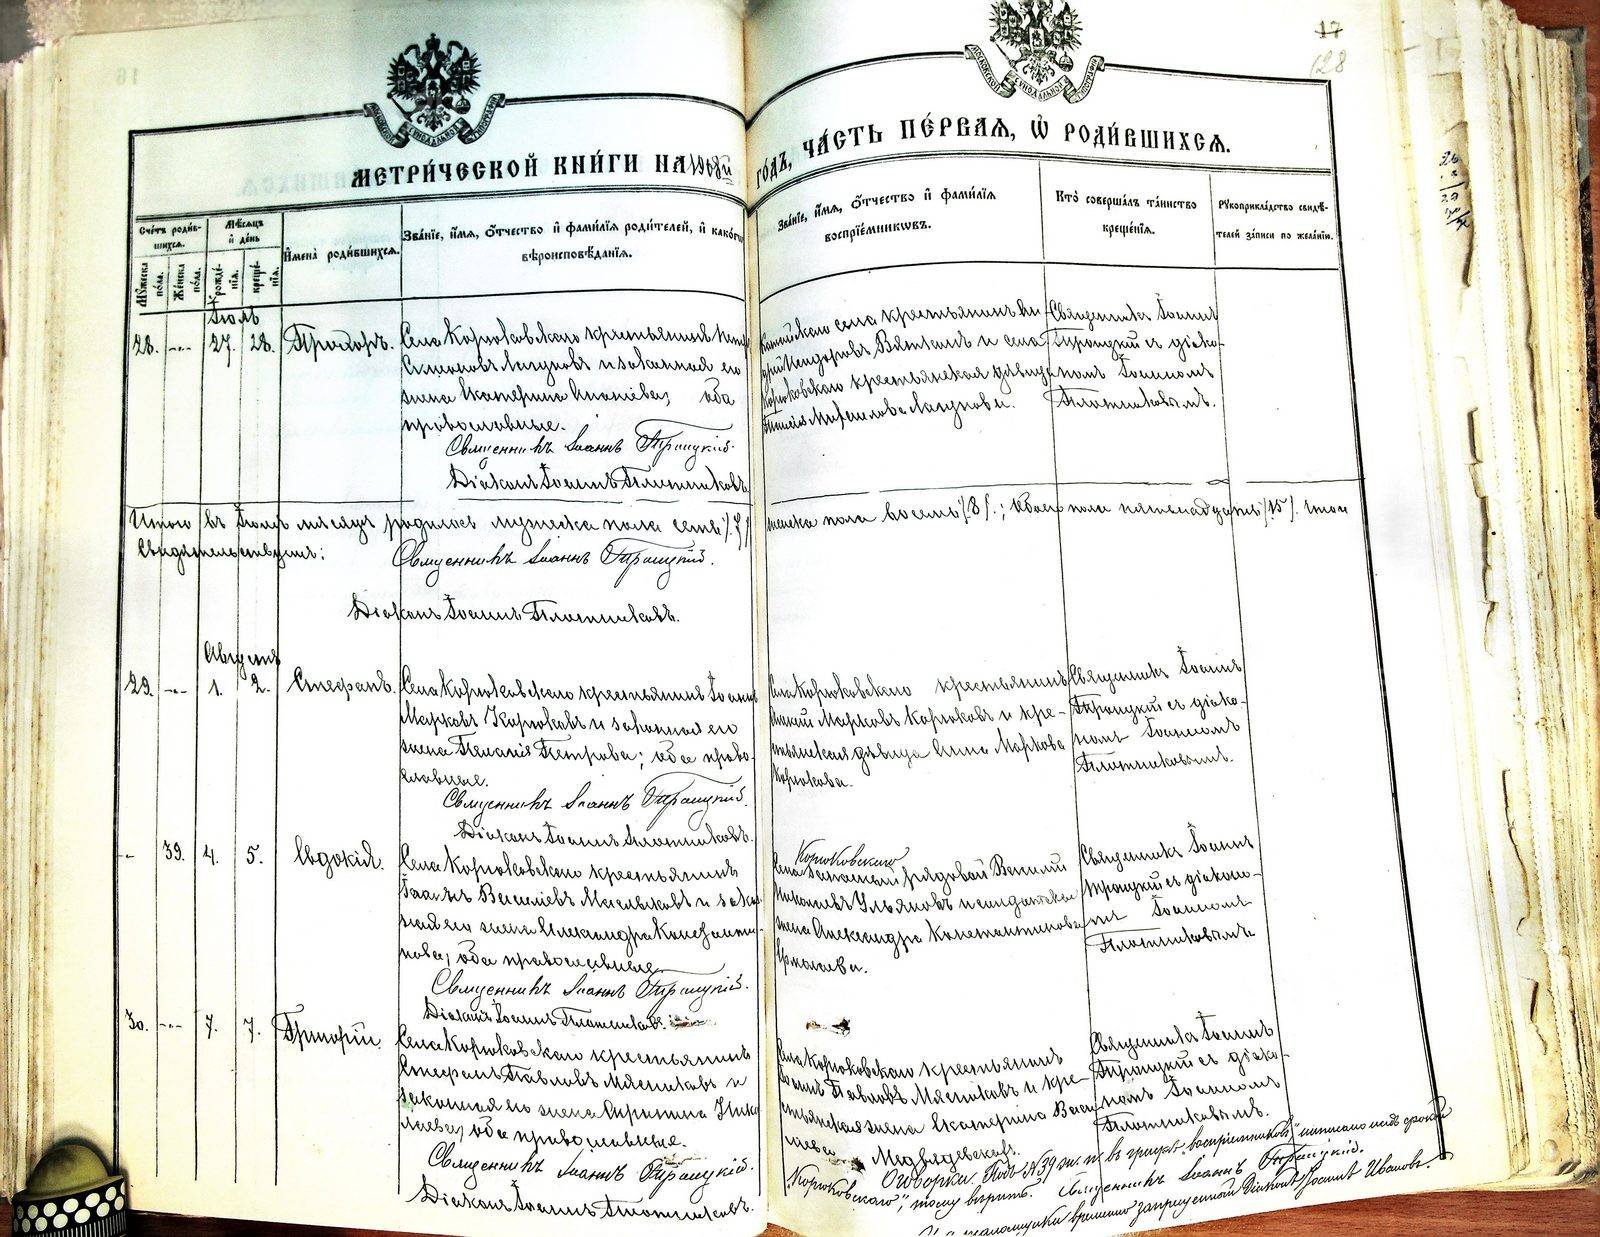 17
128
МОСКОВСКОЙ СѴНОДАЛЬНОЙ ТИПОГРАФІИ
МОСКОВСКОЙ СѴНОДАЛЬНОЙ ТИПОГРАФІИ
МЕТРИ́ЧЕСКОЙ КНИ́ГИ НА 1908й
ГО́ДЪ, ЧА́СТЬ ПЕ́РВАѦ, Ѽ РОДИ́ВШИХСѦ.
Сче́тъ роди́в-
шихся.
Мѣ́сяцъ
и҆ де́нь
Му́жеска
по́ла.
Же́нска
по́ла.
рожде́-
нїѧ.
креще́-
нїѧ.
И҆мена̀ роди́вшихсѧ.
Зва́нїе, и҆́мѧ, ѻ҆́тчество и҆ фами́лїѧ роди́телей, и҆ како́гѡ
вѣроисповѣ́данїѧ.
Зва́нїе, и҆́мѧ, ѻ҆́тчество и҆ фами́лїѧ
воспрїе́мникѡвъ.
Кто̀ соверша́лъ та́инство
креще́нїѧ.
Рꙋкоприкла́дство свидѣ́-
телей за́писи по жела́нїю.
Іюль
28. -"- 27. 28. Прохоръ.
Села Корюковскаго крестьянинъ
Симеоновъ Лагуновъ и законная его
жена Екатерина; оба
православные.
Священникъ Іоаннъ Троицкій.
Діаконъ Іоаннъ Плотниковъ.
села крестьянинъ
Вяткинъ и села
Корюковскаго крестьянская дѣвица
Лагунова.
Священникъ Іоаннъ
Троицкій съ діако-
номъ Іоанномъ
Плотниковымъ.
Итого въ Іюлѣ мѣсяцѣ родилось мужеска пола семь /7/
женска пола восемь /8/; обоего пола пятнадцать /15/.
Свидѣтельствуемъ:
Священникъ Іоаннъ Троицкій.
Діаконъ Іоаннъ Плотниковъ.
Августъ
29. -"- 1. 2. Стефанъ.
Села Корюковскаго крестьянинъ Іоаннъ
Марковъ Корюковъ и законная его
жена Пелагія Петрова; оба право-
славные.
Священникъ Іоаннъ Троицкій.
Діаконъ Іоаннъ Плотниковъ.
Села Корюковскаго крестьянинъ
Марковъ Корюковъ и кре-
стьянская дѣвица Анна Маркова
Корюкова.
Священникъ Іоаннъ
Троицкій съ діако-
номъ Іоанномъ
Плотниковымъ.
-"- 39. 4. 5. Евдокія.
Села Корюковскаго крестьянинъ
Васильевъ Мыльниковъ и закон-
ная его жена Александра Константи-
нова, оба православные.
Священникъ Іоаннъ Троицкій.
Діаконъ Іоаннъ Плотниковъ.
Корюковскаго
Села рядовой Василій
Николаевъ Ульяновъ и солдатская
жена Александра Константинова
Ермолаева.
Священникъ Іоаннъ
Троицкій съ діако-
номъ Іоанномъ
Плотниковымъ
30. -"- 7. 7. Григорій.
Села Корюковскаго крестьянинъ
Стефанъ Павловъ Мясниковъ и
законная его жена Нико-
лаева, оба православные.
Священникъ Іоаннъ Троицкій.
Діаконъ Іоаннъ Плотниковъ.
Села Корюковскаго крестьянинъ
Іоаннъ Павловъ Мясниковъ и кре-
стьянская жена Екатерина Васи-
льева Медвѣдевскихъ.
Священникъ Іоаннъ
Троицкій съ діако-
номъ Іоанномъ
Плотниковымъ.
Оговорка. Подъ №39 въ графѣ „воспріемниковъ" написано надъ строкой
„Корюковскаго", тому вѣрить. Священникъ Іоаннъ Троицкій.
псаломщика временно запрещенный Діаконъ Іоаннъ Ивановъ.